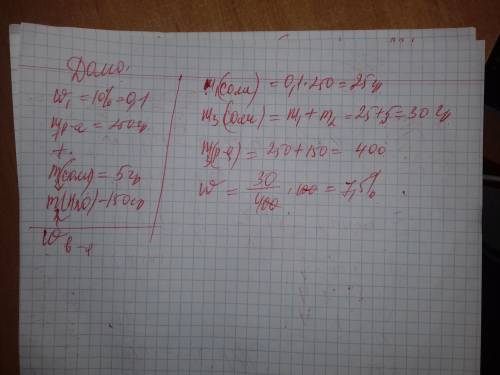 Дано:
W₁ = 10% = 0,1
m р-а = 250гр
+.
m₂(соли) = 5гр
m₂(H₂O) - 150гр
W в-а
m₁(соли) = 0,1·250 = 25гр
m₃(соли) = m₁ + m₂ = 25+5 = 30гр
m₃(р-а) = 250+150 = 400
W = 30/400 · 100 = 7,5%